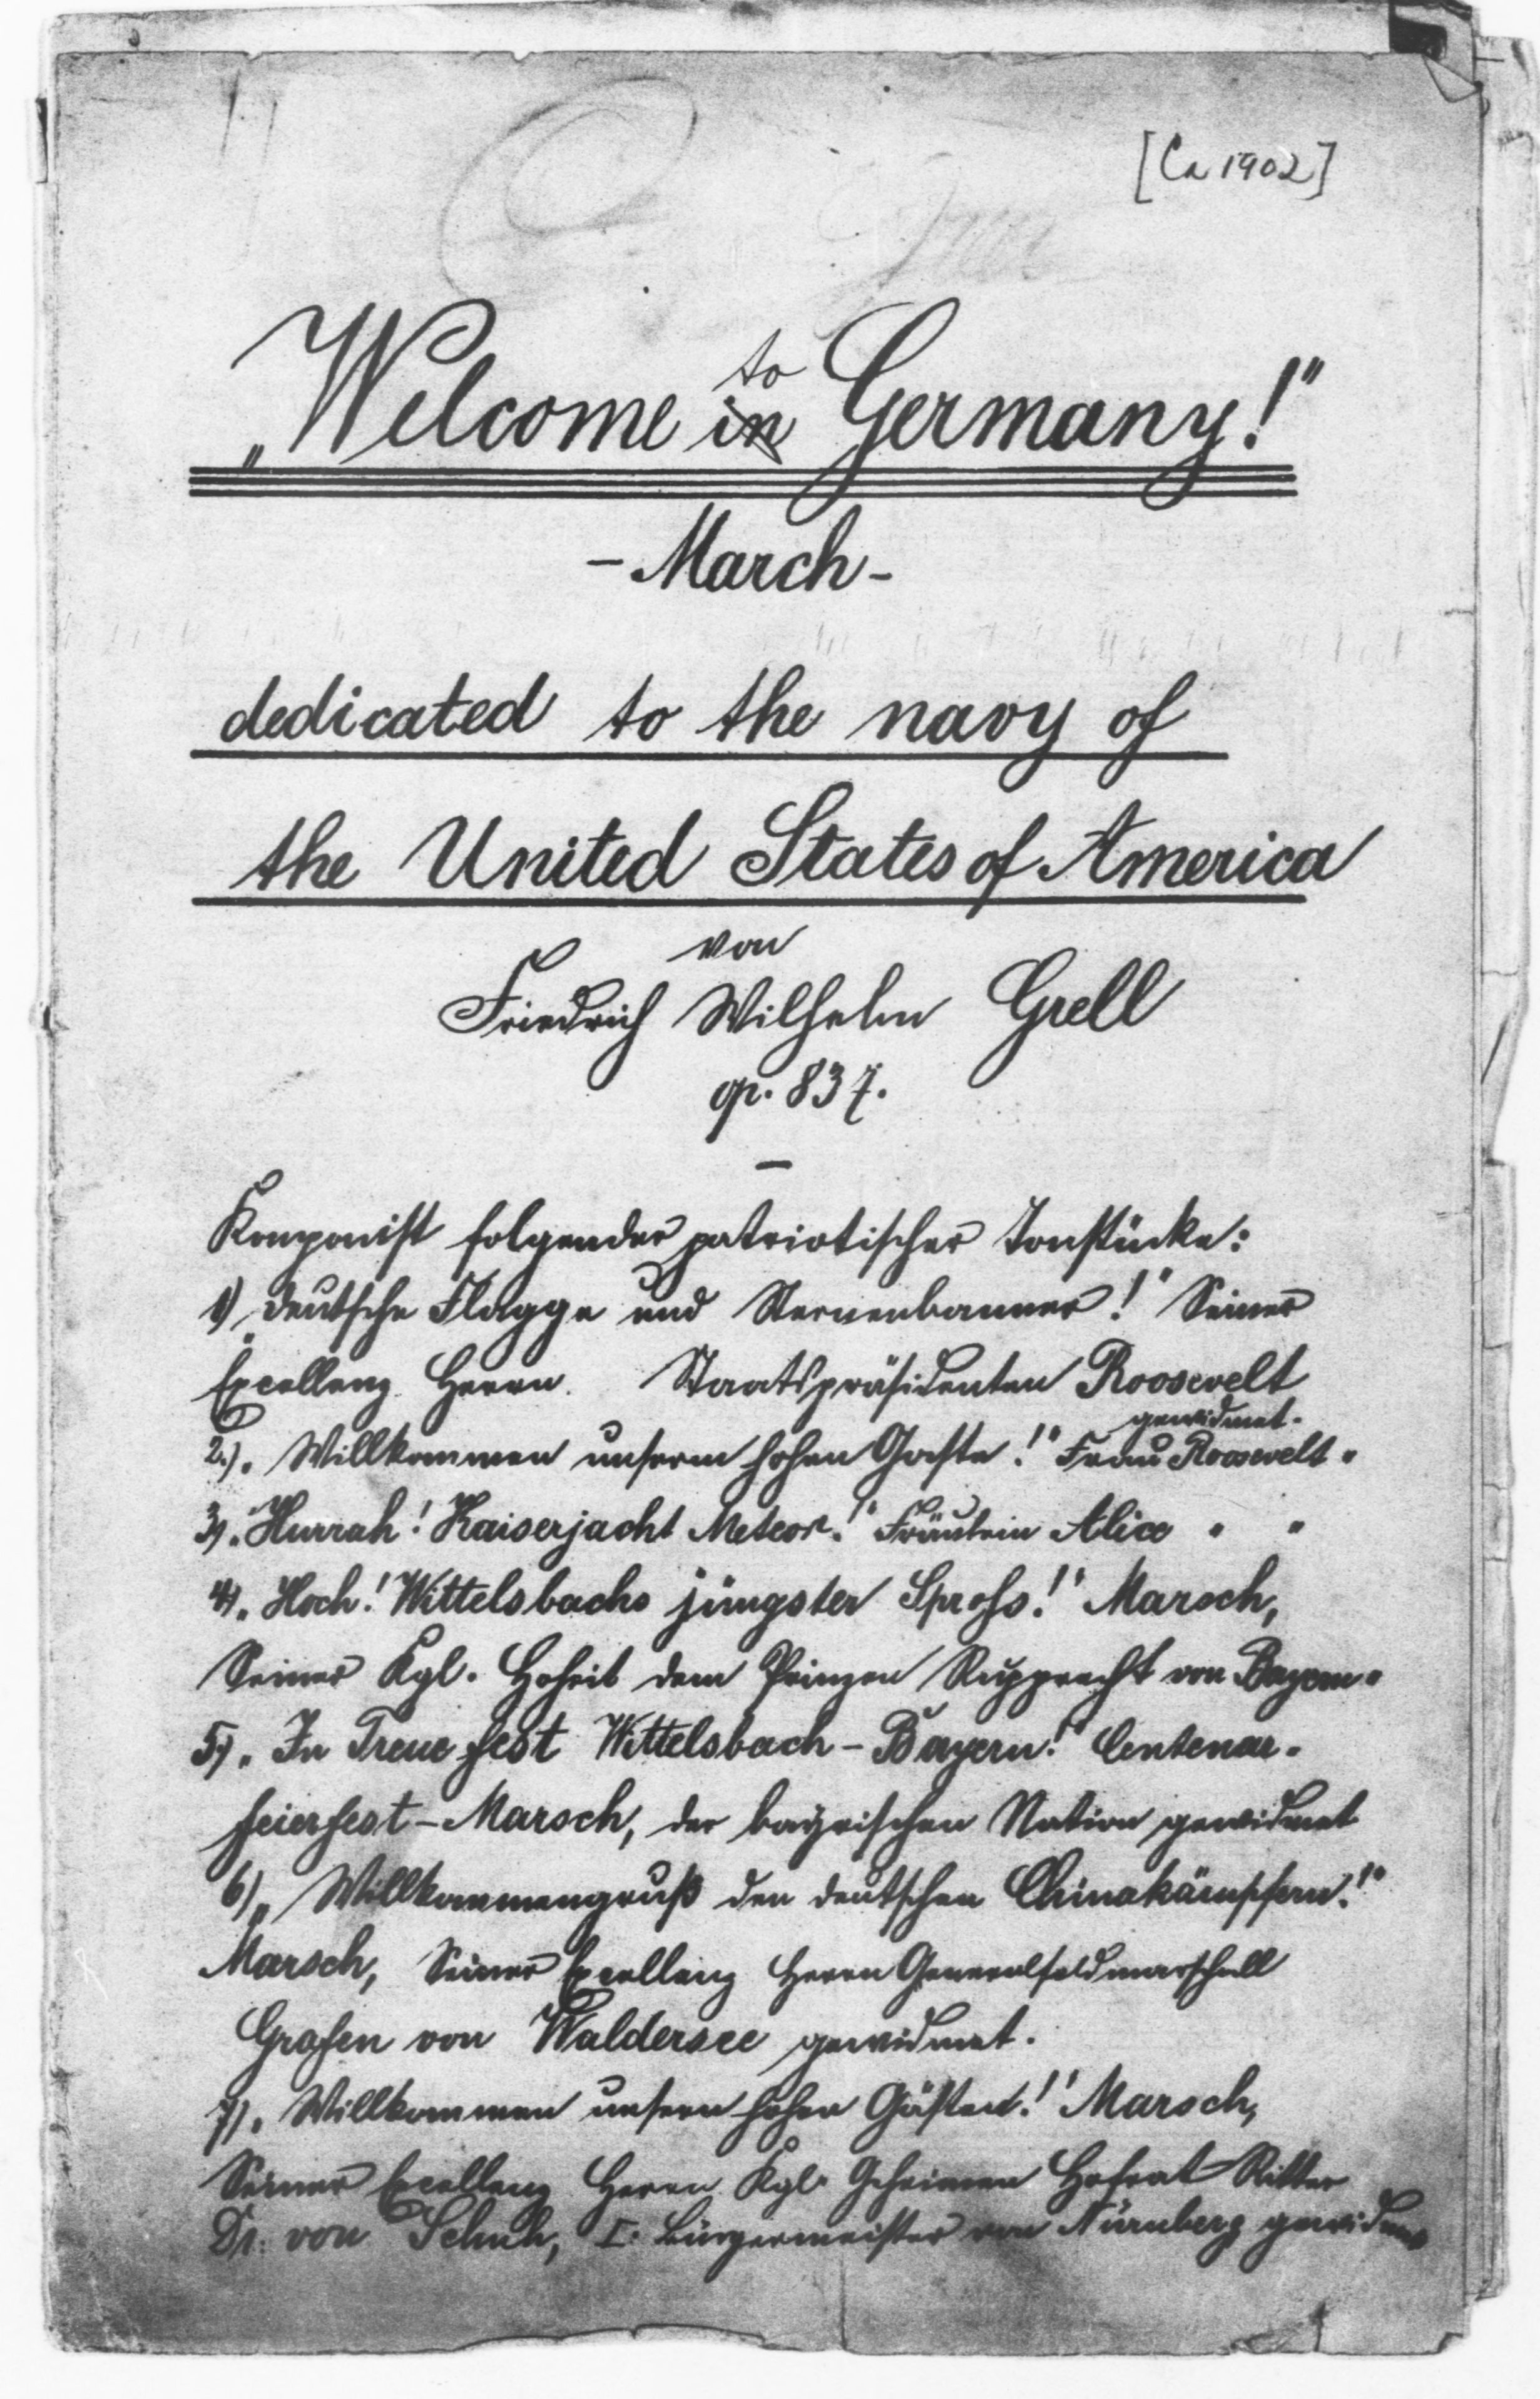 [Ca 1902]
„Welcome in to Germany!"
- March -
dedicated to the navy of
the United States of America
von
Friedrich Wilhelm Grell
op. 837.
Komponist folgender patriotischer Tonstücke:
1) „Deutsche Flagge und Sternenbanner!" Seiner
Excellenz Herrn Staatspräsidenten Roosevelt
gewidmet.
2.) „Willkommen unserm hohen Gaste!" Frau Roosevelt "
3) „Hurrah! Kaiserjacht Meteor!" Fräulein Alice " "
4) „Hoch! Wittelsbachs jüngster Spross!" Marsch,
Seiner Kgl. Hoheit dem Prinzen Rupprecht von Bayern "
5) „In Treue fest Wittelsbach-Bayern!" Centenar-
feierfest-Marsch, der bayrischen Nation gewidmet
6) „Willkommengruß den deutschen Chinakämpfern!"
Marsch, Seiner Excellenz Herrn Generalfeldmarschall
Grafen von Waldersee gewidmet.
7) „Willkommen unsern hohen Gästen!" Marsch,
Seiner Excellenz Herrn Kgl. Geheimen Hofrat Ritter
Dr. von Schuh, I. Bürgermeister von Nürnberg gewidmet